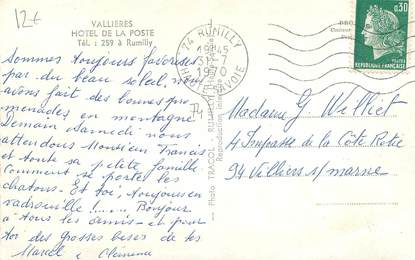 12€
VALLIERES
HOTEL DE LA POSTE
Tél. : 259 à Rumilly
74 RUMILLY
19H45
31-7
1970
HAUTE-SAVOIE
0,30
REPUBLIQUE FRANÇAISE
POSTES
Sommes toujours favorisés
par du beau soleil, nous
avons fait des bonnes pro
menades en montagne
Demain Samedi nous
attendons Monsieur Francis
et toute sa petite famille
Comment se portent les
chatons. Et toi, toujours en
vadrouille !..... Bonjour
à tous les amis et pour
toi des grosses bises de tes
Marcel & Clémence
74
Photo TRACOL RUMILLY
Reproduction
Madame G. Williet
4 Impasse de la Côte Rotie
94 Villiers s/marne